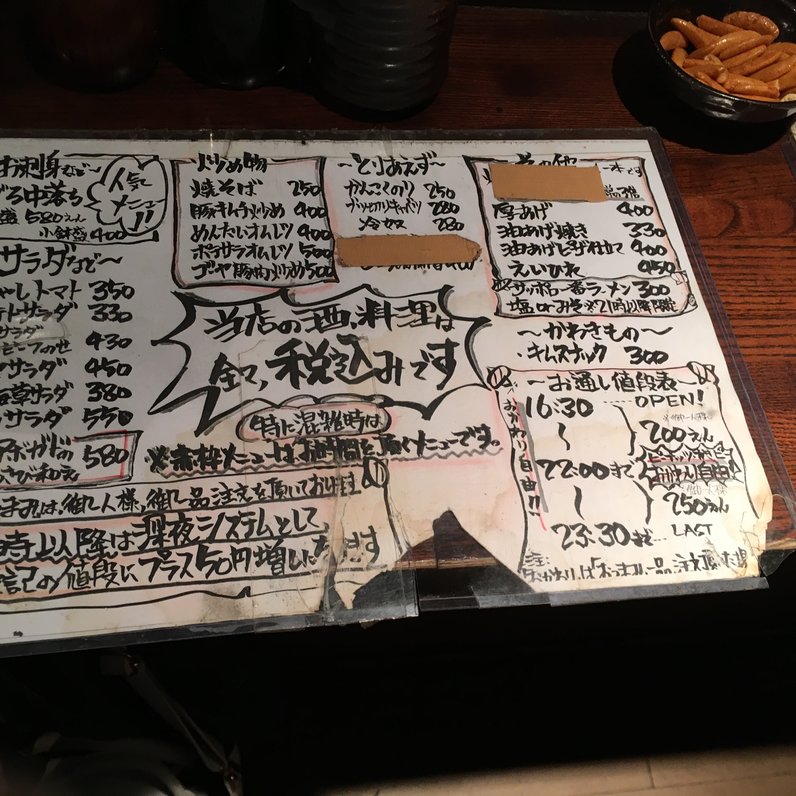 お刺身など〜
ろ中落ち
580えん
小鉢盛 400
人気
メニュー!!
サラダなど〜
トマト 350
トサラダ 330
サラダ
のせ 430
サラダ 450
サラダ 380
サラダ 550
アボガドの
さび和え 580
炒め物
焼そば 250
豚キムチ炒め 400
めんたいオムレツ 400
ポテサラオムレツ 500
ゴーヤ豚肉炒め 500
〜とりあえず〜
かんこくのり 250
ブツ切りキャベツ 280
冷奴 280
その他
厚あげ 400
油あげ焼き 330
油あげピザ仕立て 400
えいひれ 450
サッポロ一番ラーメン 300
塩 or みそ ※21時以降限定
〜かわきもの〜
・キムスナック 300
当店の酒、料理は
全て、税込みです
特に混雑時は
※赤枠メニューはお時間を頂くメニューです。
まみは、御一人様、御一品注文を頂いております
時以降は深夜システムとして、
記の値段にプラス50円増しいただきます
〜お通し値段表〜
16:30 ...... OPEN!
〜
200えん
22:00まで
おかわり自由
おかわり自由!!
〜
250えん
23:30まで... LAST